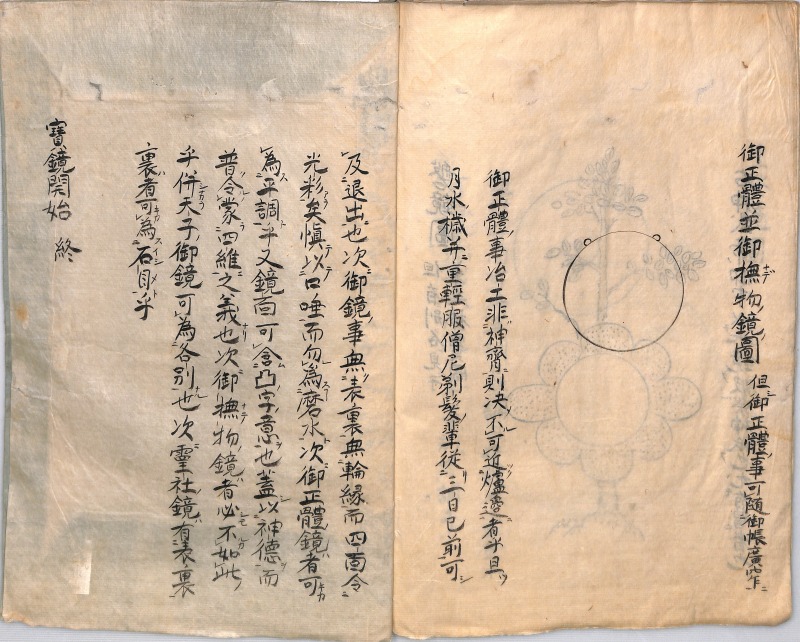 御正體並御撫物鏡圖 但御正體事可隨御帳廣窄
御正體事冶士非神齊則决不可近爐邊者乎且
月水穢并重輕服僧尼剃髮輩従三日已前可
及退出也次御鏡事無表裏無輪縁而四面令
光彩矣慎以口唾而勿為磨水次御正體鏡者可
為平調乎又鏡面可含凸字意也蓋以神德而
普令蒙四維之義也次御撫物鏡者必不如此
乎併天子御鏡可為各別也次霊社鏡有表裏
裏者可為石目乎
寶鏡開始 終